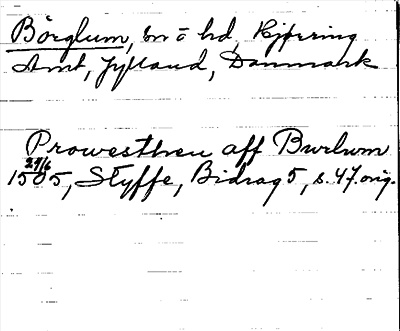 Börglum, sn o hd, Hjøring
Amt, Jylland, Danmark
Prowesthen aff Burlum
27/6
1505, Styffe, Bidrag 5, s. 47. orig.